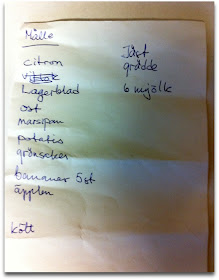 Målle
citron
Lagerblad
ost
marsipan
potatis
grönsaker
bananer 5st
äpplen
kött
Jäst
grädde
6 mjölk